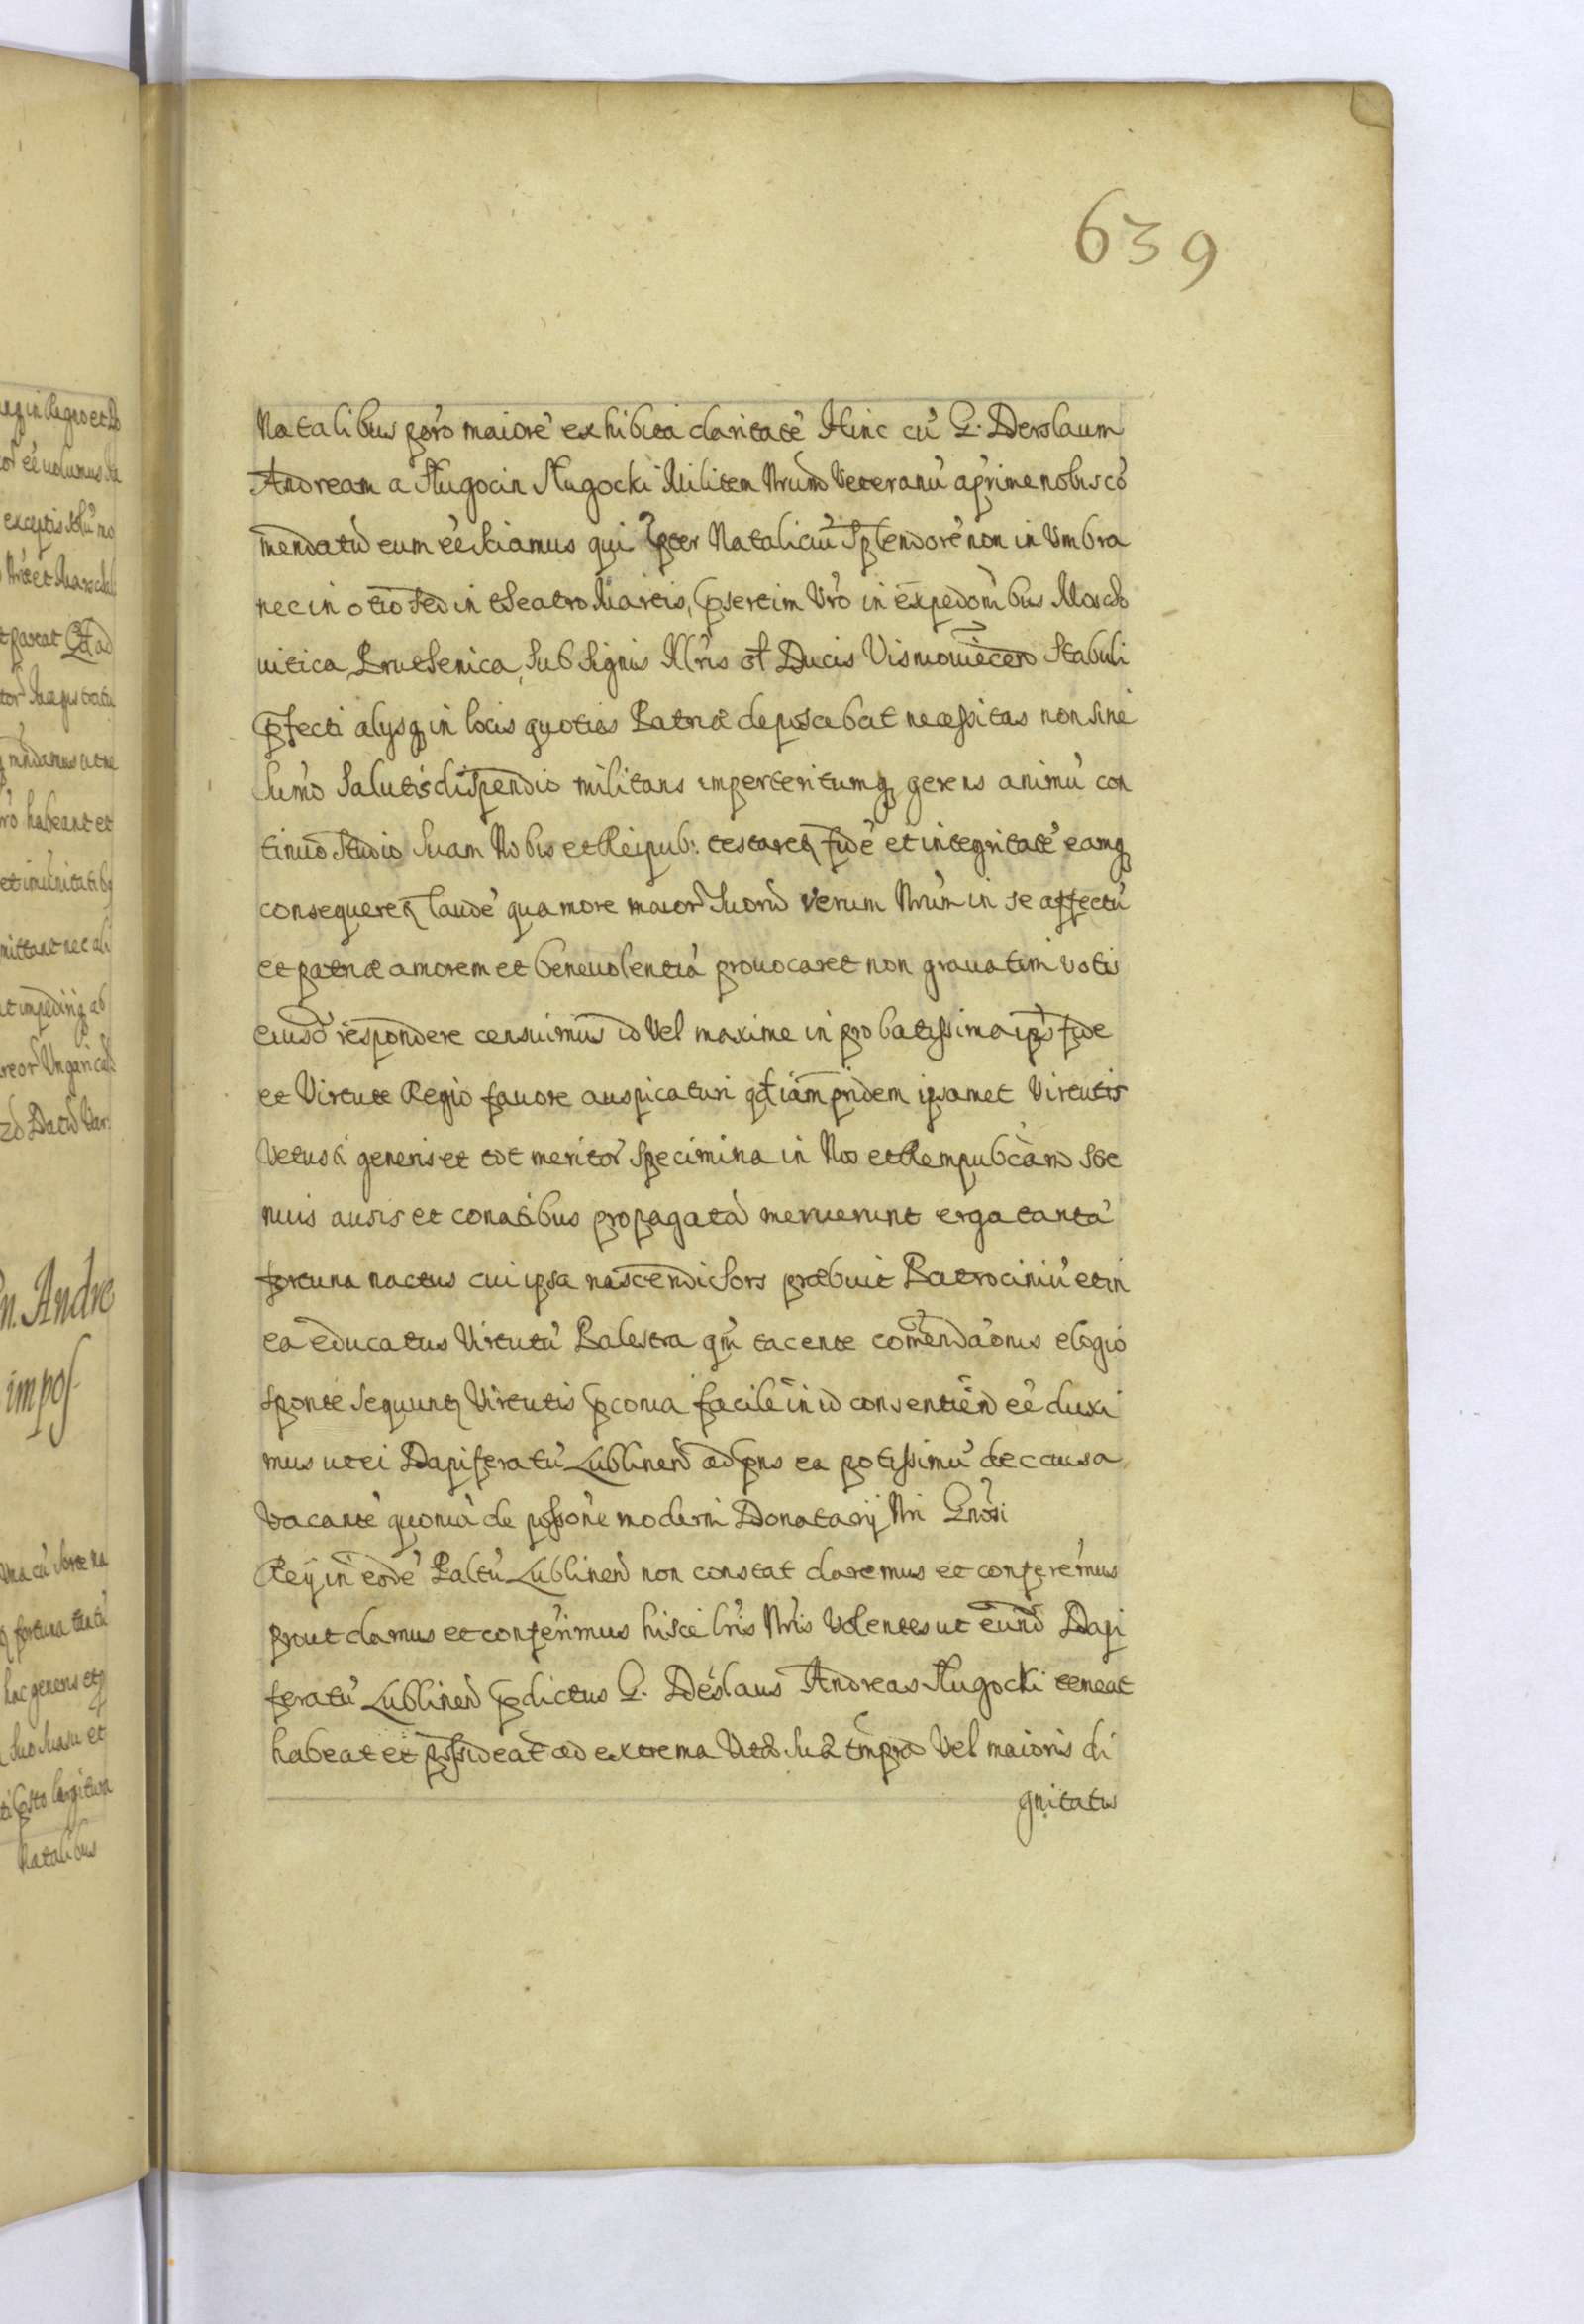 639
Natalibus poro maiorē exhibita claritatē Hinc cū G. Derslaum
Andream a Sługocin Sługocki Militem Nrum Veteranū aprime nobis cō
mendatū eum eē sciamus qui pter Nataliciū Splendorē non in Vmbra
nec in otio sed in theatro Martis, psertim Vro in expedōnibus Moscho
uitica Pruthenica, sub signis Mris olī Ducis Visniouiecen Stabuli
pfecti alysq in locis quoties Patriæ deposcebat necessitas non sine
sumō Salutis dispendio militans imperteritumq gerens animū con
tinuo studio suam Nobis et Reipub: testareq fidē et integritatē eamq
consequereq laudē qua more maior Suorū verum Nrum in se affectū
et patriæ amorem et beneuolentiā prouocaret non grauatim votis
eiusd respondere censuimus id Vel maxime in probatissima ips fide
et Virtute Regio fauore auspicaturi qd iam pridem ipsamet Virtutis
Vetusti generis et tot meritor specimina in Nos et Rempubcam stre
nuis ausis et conatibus propagata meruerunt erga tanta
fortuna nactus cui ipsa nascendi sors præbuit Patrociniū et in
ea educatus Virtutū Palestra qm tacente comendāonis elogio
sponte sequunq Virtutis pconia facile in id consentien eē duxi
mus ut ei Dapiferatū Lublinen ad pns ea potissimū de causa
Vacantē quoniā de possone moderni Donatarij Nri Gnosi
Reÿ in eodē Paltū Lublinen non constat daremus et conferemus
prout damus et conferimus hisce lris Nris Volentes ut eund Dapi
feratū Lublinen pdictus G. Deslaus Andreas Sługocki teneat
habeat et possideat ad extrema Vitæ suæ tmpra Vel maioris di
gnitatis
n. Andre
impos
Natalibus